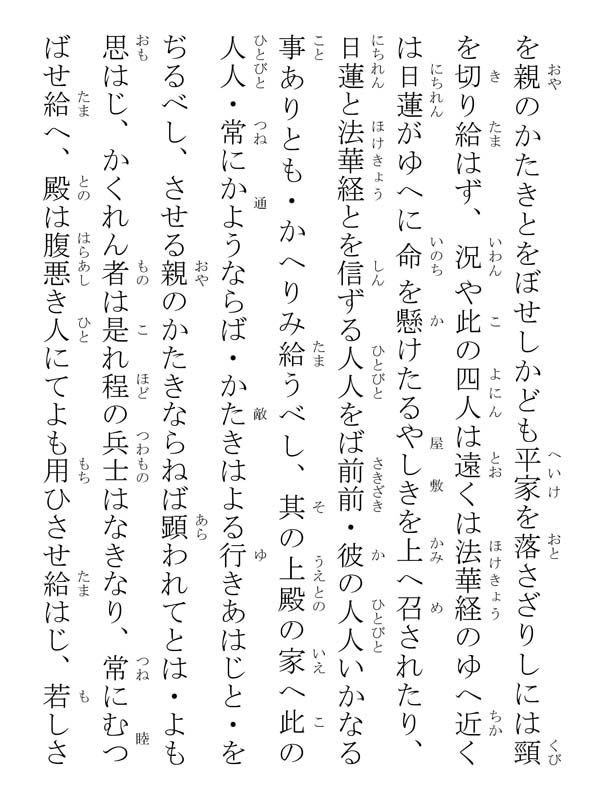 を親のかたきとをぼせしかども平家を落さざりしには頸
を切り給はず、況や此の四人は遠くは法華経のゆへ近く
は日蓮がゆへに命を懸けたるやしきを上へ召されたり、
日蓮と法華経とを信ずる人人をば前前・彼の人人いかなる
事ありとも・かへりみ給うべし、其の上殿の家へ此の
人人・常にかようならば・かたきはよる行きあはじと・を
ぢるべし、させる親のかたきならねば顕われてとは・よも
思はじ、かくれん者は是れ程の兵士はなきなり、常にむつ
ばせ給へ、殿は腹悪き人にてよも用ひさせ給はじ、若しさ